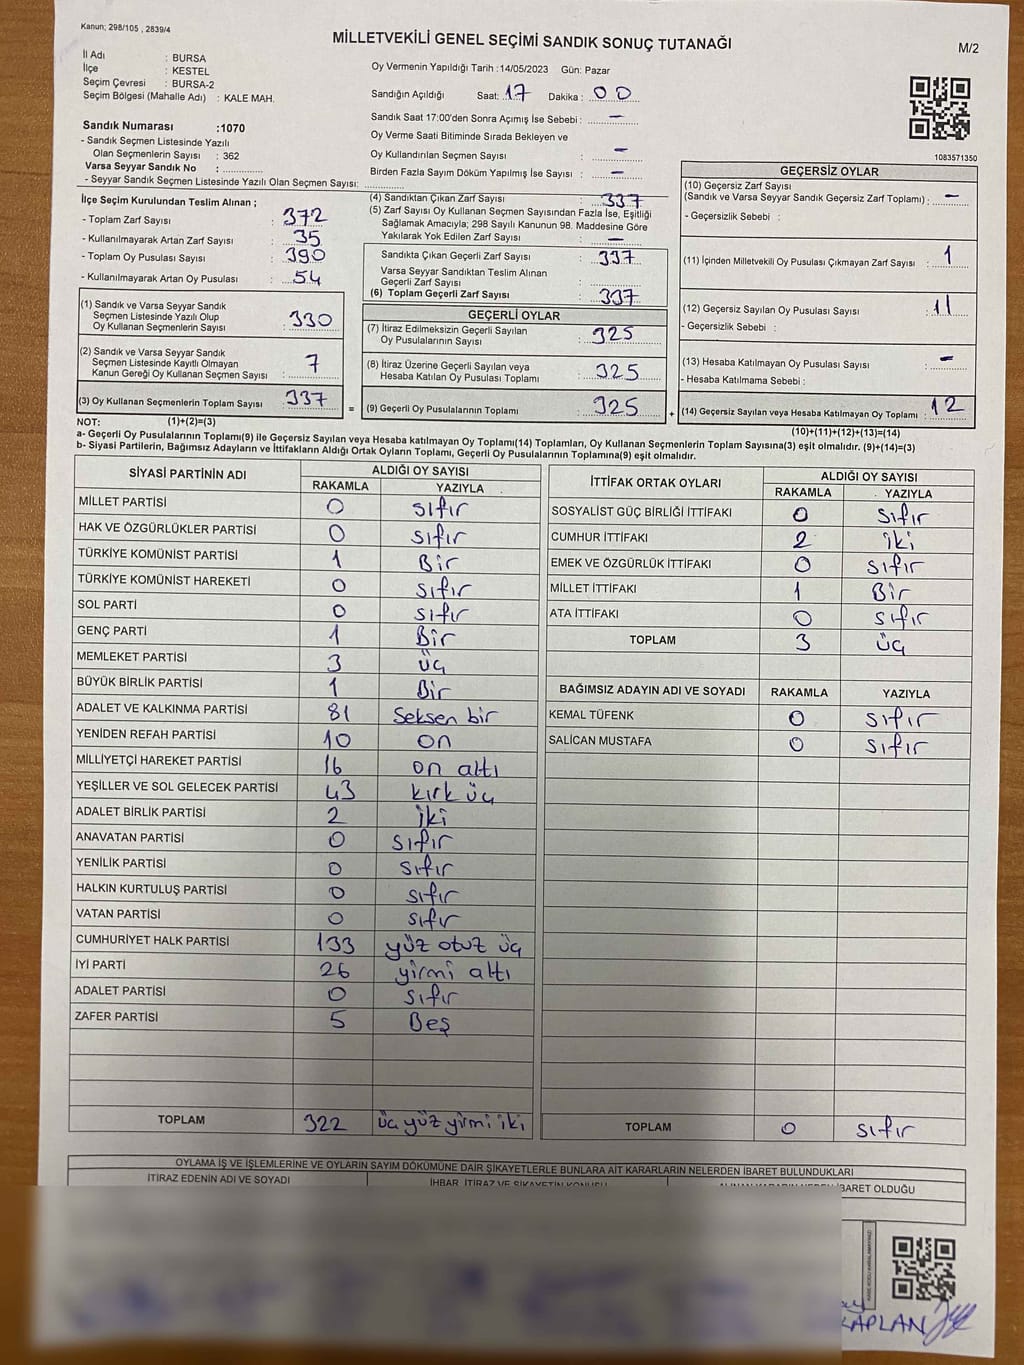 Kanun; 298/105 , 2839/4
MİLLETVEKİLİ GENEL SEÇİMİ SANDIK SONUÇ TUTANAĞI
M/2
İl Adı : BURSA
İlçe : KESTEL
Seçim Çevresi : BURSA-2
Seçim Bölgesi (Mahalle Adı) : KALE MAH.
Oy Vermenin Yapıldığı Tarih :14/05/2023 Gün: Pazar
Sandığın Açıldığı Saat: 17 Dakika : 00
Sandık Saat 17:00'den Sonra Açımış İse Sebebi : -
Oy Verme Saati Bitiminde Sırada Bekleyen ve
Oy Kullandırılan Seçmen Sayısı : -
Birden Fazla Sayım Döküm Yapılmış İse Sayısı : -
1083571350
Sandık Numarası :1070
- Sandık Seçmen Listesinde Yazılı
Olan Seçmenlerin Sayısı : 362
Varsa Seyyar Sandık No :
- Seyyar Sandık Seçmen Listesinde Yazılı Olan Seçmen Sayısı:
İlçe Seçim Kurulundan Teslim Alınan ;
- Toplam Zarf Sayısı : 372
- Kullanılmayarak Artan Zarf Sayısı : 35
- Toplam Oy Pusulası Sayısı : 390
- Kullanılmayarak Artan Oy Pusulası : 54
(1) Sandık ve Varsa Seyyar Sandık
Seçmen Listesinde Yazılı Olup
Oy Kullanan Seçmenlerin Sayısı : 330
(2) Sandık ve Varsa Seyyar Sandık
Seçmen Listesinde Kayıtlı Olmayan
Kanun Gereği Oy Kullanan Seçmen Sayısı : 7
(3) Oy Kullanan Seçmenlerin Toplam Sayısı : 337
(1)+(2)=(3)
(4) Sandıktan Çıkan Zarf Sayısı : 337
(5) Zarf Sayısı Oy Kullanan Seçmen Sayısından Fazla İse, Eşitliği
Sağlamak Amacıyla; 298 Sayılı Kanunun 98. Maddesine Göre
Yakılarak Yok Edilen Zarf Sayısı : -
Sandıkta Çıkan Geçerli Zarf Sayısı : 337
Varsa Seyyar Sandıktan Teslim Alınan
Geçerli Zarf Sayısı :
(6) Toplam Geçerli Zarf Sayısı : 337
GEÇERLİ OYLAR
(7) İtiraz Edilmeksizin Geçerli Sayılan
Oy Pusulalarının Sayısı : 325
(8) İtiraz Üzerine Geçerli Sayılan veya
Hesaba Katılan Oy Pusulası Toplamı : 325
= (9) Geçerli Oy Pusulalarının Toplamı : 325 +
GEÇERSİZ OYLAR
(10) Geçersiz Zarf Sayısı
(Sandık ve Varsa Seyyar Sandık Geçersiz Zarf Toplamı) : -
- Geçersizlik Sebebi :
(11) İçinden Milletvekili Oy Pusulası Çıkmayan Zarf Sayısı : 1
(12) Geçersiz Sayılan Oy Pusulası Sayısı : 11
- Geçersizlik Sebebi :
(13) Hesaba Katılmayan Oy Pusulası Sayısı : -
- Hesaba Katılmama Sebebi :
(14) Geçersiz Sayılan veya Hesaba Katılmayan Oy Toplamı : 12
(10)+(11)+(12)+(13)=(14)
NOT:
a- Geçerli Oy Pusulalarının Toplamı(9) ile Geçersiz Sayılan veya Hesaba katılmayan Oy Toplamı(14) Toplamları, Oy Kullanan Seçmenlerin Toplam Sayısına(3) eşit olmalıdır. (9)+(14)=(3)
b- Siyasi Partilerin, Bağımsız Adayların ve İttifakların Aldığı Ortak Oyların Toplamı, Geçerli Oy Pusulalarının Toplamına(9) eşit olmalıdır.
SİYASİ PARTİNİN ADI ALDIĞI OY SAYISI
RAKAMLA YAZIYLA
MİLLET PARTİSİ 0 sıfır
HAK VE ÖZGÜRLÜKLER PARTİSİ 0 sıfır
TÜRKİYE KOMÜNİST PARTİSİ 1 Bir
TÜRKİYE KOMÜNİST HAREKETİ 0 sıfır
SOL PARTİ 0 sıfır
GENÇ PARTİ 1 Bir
MEMLEKET PARTİSİ 3 üç
BÜYÜK BİRLİK PARTİSİ 1 Bir
ADALET VE KALKINMA PARTİSİ 81 Seksen bir
YENİDEN REFAH PARTİSİ 10 on
MİLLİYETÇİ HAREKET PARTİSİ 16 on altı
YEŞİLLER VE SOL GELECEK PARTİSİ 43 kırk üç
ADALET BİRLİK PARTİSİ 2 iki
ANAVATAN PARTİSİ 0 sıfır
YENİLİK PARTİSİ 0 sıfır
HALKIN KURTULUŞ PARTİSİ 0 sıfır
VATAN PARTİSİ 0 sıfır
CUMHURİYET HALK PARTİSİ 133 yüz otuz üç
İYİ PARTİ 26 yirmi altı
ADALET PARTİSİ 0 sıfır
ZAFER PARTİSİ 5 Beş
TOPLAM 322 üç yüz yirmi iki
İTTİFAK ORTAK OYLARI ALDIĞI OY SAYISI
RAKAMLA YAZIYLA
SOSYALİST GÜÇ BİRLİĞİ İTTİFAKI 0 sıfır
CUMHUR İTTİFAKI 2 iki
EMEK VE ÖZGÜRLÜK İTTİFAKI 0 sıfır
MİLLET İTTİFAKI 1 Bir
ATA İTTİFAKI 0 sıfır
TOPLAM 3 üç
BAĞIMSIZ ADAYIN ADI VE SOYADI RAKAMLA YAZIYLA
KEMAL TÜFENK 0 sıfır
SALİCAN MUSTAFA 0 sıfır
TOPLAM 0 sıfır
OYLAMA İŞ VE İŞLEMLERİNE VE OYLARIN SAYIM DÖKÜMÜNE DAİR ŞİKAYETLERLE BUNLARA AİT KARARLARIN NELERDEN İBARET BULUNDUKLARI
İTİRAZ EDENİN ADI VE SOYADI İHBAR, İTİRAZ VE ŞİKAYETİN KONUSU ALINAN KARARIN NEDEN İBARET OLDUĞU
KAPLAN